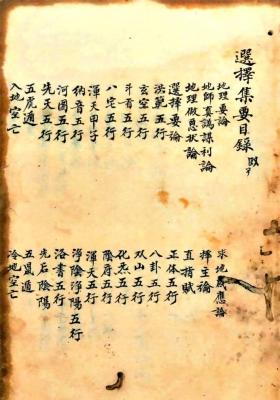 選擇集要目錄
地理要論
求地感應論
地師真譌謀利論
擇主論
地理倣悳狀論
直指賦
選擇要論
正体五行
洪範五行
八卦五行
玄空五行
双山五行
斗首五行
化炁五行
八宅五行
陰府五行
渾天甲子
渾天五行
納音五行
淨陰淨陽五行
河圖五行
洛書五行
先天五行
先后陰陽
五虎遁
五鼠遁
入地空亡
冷地空亡